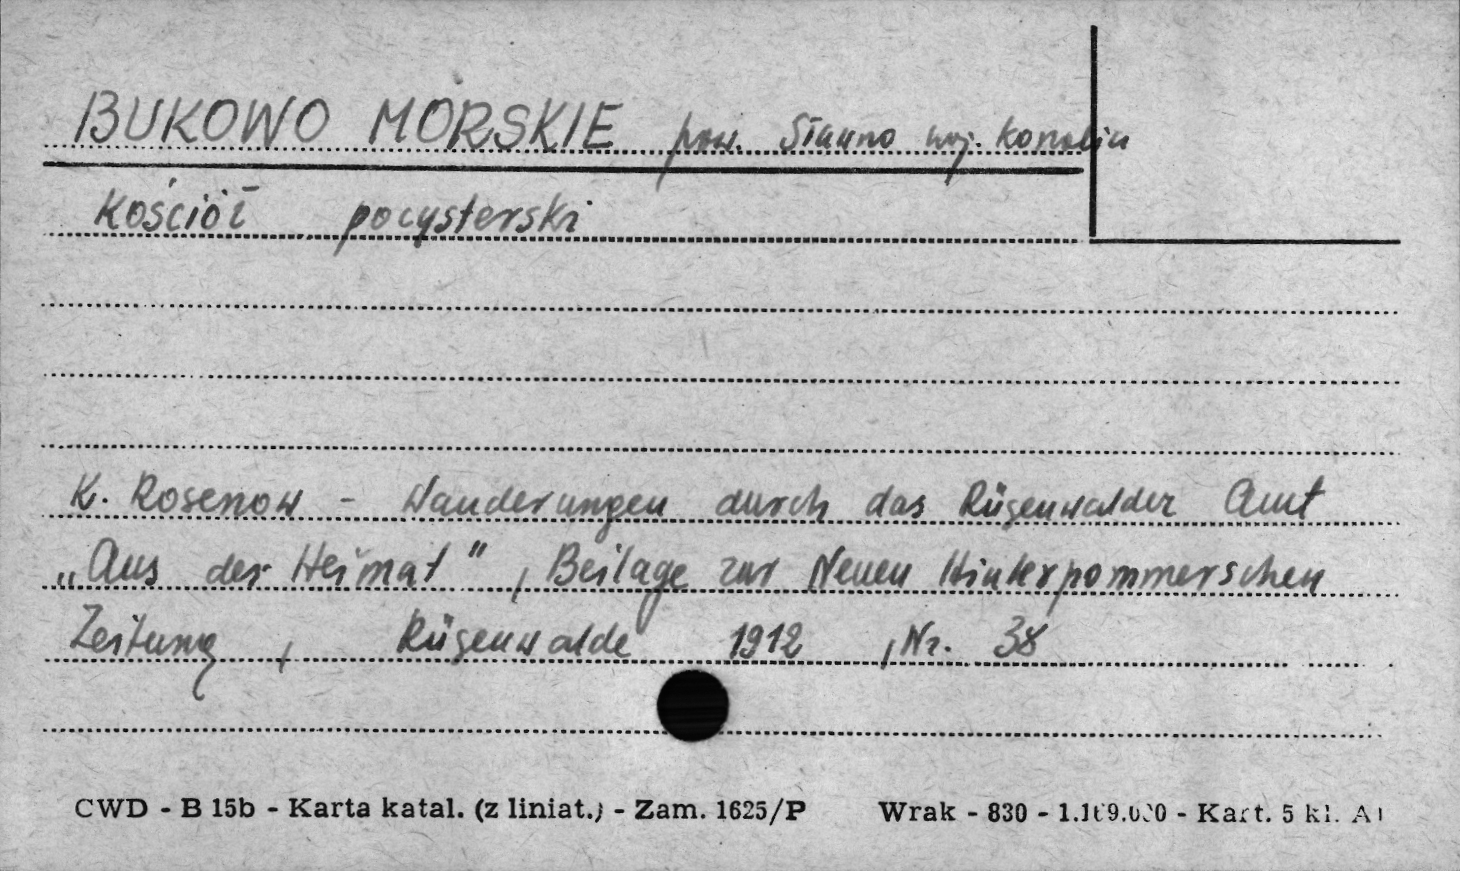 BUKOWO MORSKIE pow. Sławno woj. Koszalin
Kościół pocysterski
K. Rosenow - Wanderungen durch das Rügenwalder Amt
„Aus der Heimat", Beilage zur Neuen Hinterpommerschen
Zeitung, Rügenwalde 1912, Nr. 38
CWD - B 15b - Karta katal. (z liniat.) - Zam. 1625/P Wrak - 830 - 1.169.000 - Kart. 5 kl.